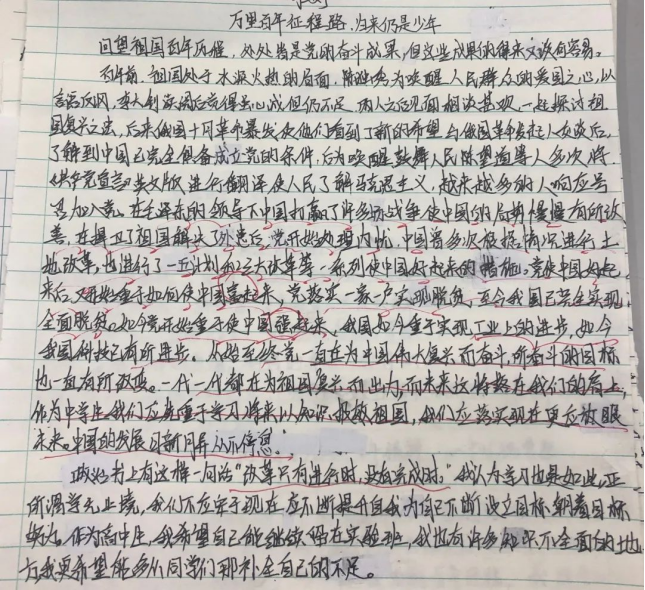 万里百年征程路,归来仍是少年
回望祖国百年历程,处处皆是党的奋斗成果,但这些成果的得来又谈何容易。
百年前,祖国处于水深火热的局面,陈独秀为唤醒人民群众的爱国之心,以
言语反网,李大钊深阅后觉得虽心诚但仍不足,两人之后见面相谈甚欢,一起探讨祖
国复兴之法,后来俄国十月革命暴发使他们看到了新的希望与俄国革命发起人交谈后,
了解到中国已完全俱备成立党的条件,后为唤醒鼓舞人民陈望道等人多次将
《共产党宣言》英文版进行翻译使人民了解马克思主义,越来越多的人响应号
召加入党。在毛泽东的领导下中国打赢了许多场战争使中国的局势慢慢有所改
善,在捍卫了祖国解决了外患后,党开始处理内忧,中国曾多次根据情况进行土
地改革,也进行了一五计划和三大改革等一系列使中国好起来的措施。党使中国好起
来后,又开始重于如何使中国富起来,党落实一家一户实现脱贫,至今我国已完全实现
全面脱贫。如今党开始重于使中国强起来,我国如今重于实现工业上的进步,如今
我国科技已有所进步。从始至终党一直在为中国伟大复兴而奋斗所奋斗的目标
也一直有所改变。一代一代都在为祖国复兴而出力,而未来这将落在我们的肩上,
作为中学生我们应先重于学习将来以知识报效祖国,我们应落实现在更应放眼
未来。中国的发展日新月异从不停息。
政治书上有这样一句话"改革只有进行时,没有完成时。"我认为学习也是如此,正
所谓学无止境,我们不应安于现在应不断提升自我为自己不断设立目标朝着目标
奔跑。作为高中生,我希望自己能继续待在实验班,我也有许多知识不全面的地
方我更希望能多从同学们那补全自己的不足。